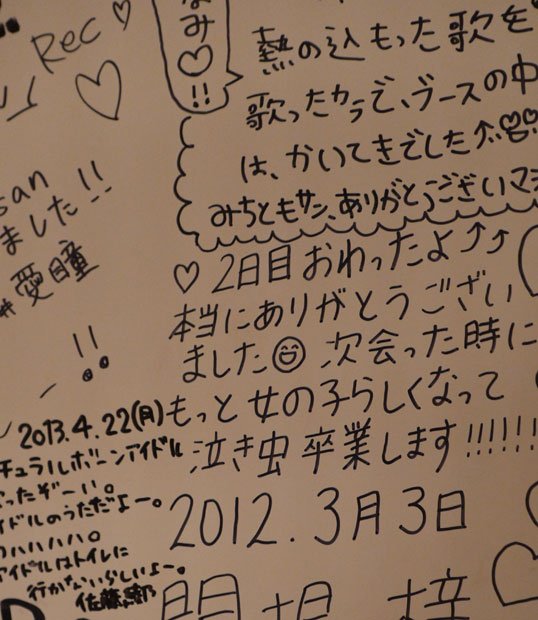 Rec
なみ♡!!
熱の込もった歌を
歌ったカラで、ブースの中
は、かいてきでした
みちともサン、ありがとうございマ
san
ました!!
#愛瞳
!!
♡2日目おわったよ⤴⤴
本当にありがとうござい
ました 次会った時に
もっと女の子らしくなって
泣き虫卒業します!!!!!!
2012.3月3日
2013.4.22(月)
チュラルボーンアイドル
ったぞーい。
イドルのうただよー。
ハハハハ。
アイドルはトイレに
行かないらしいよー。
佐藤